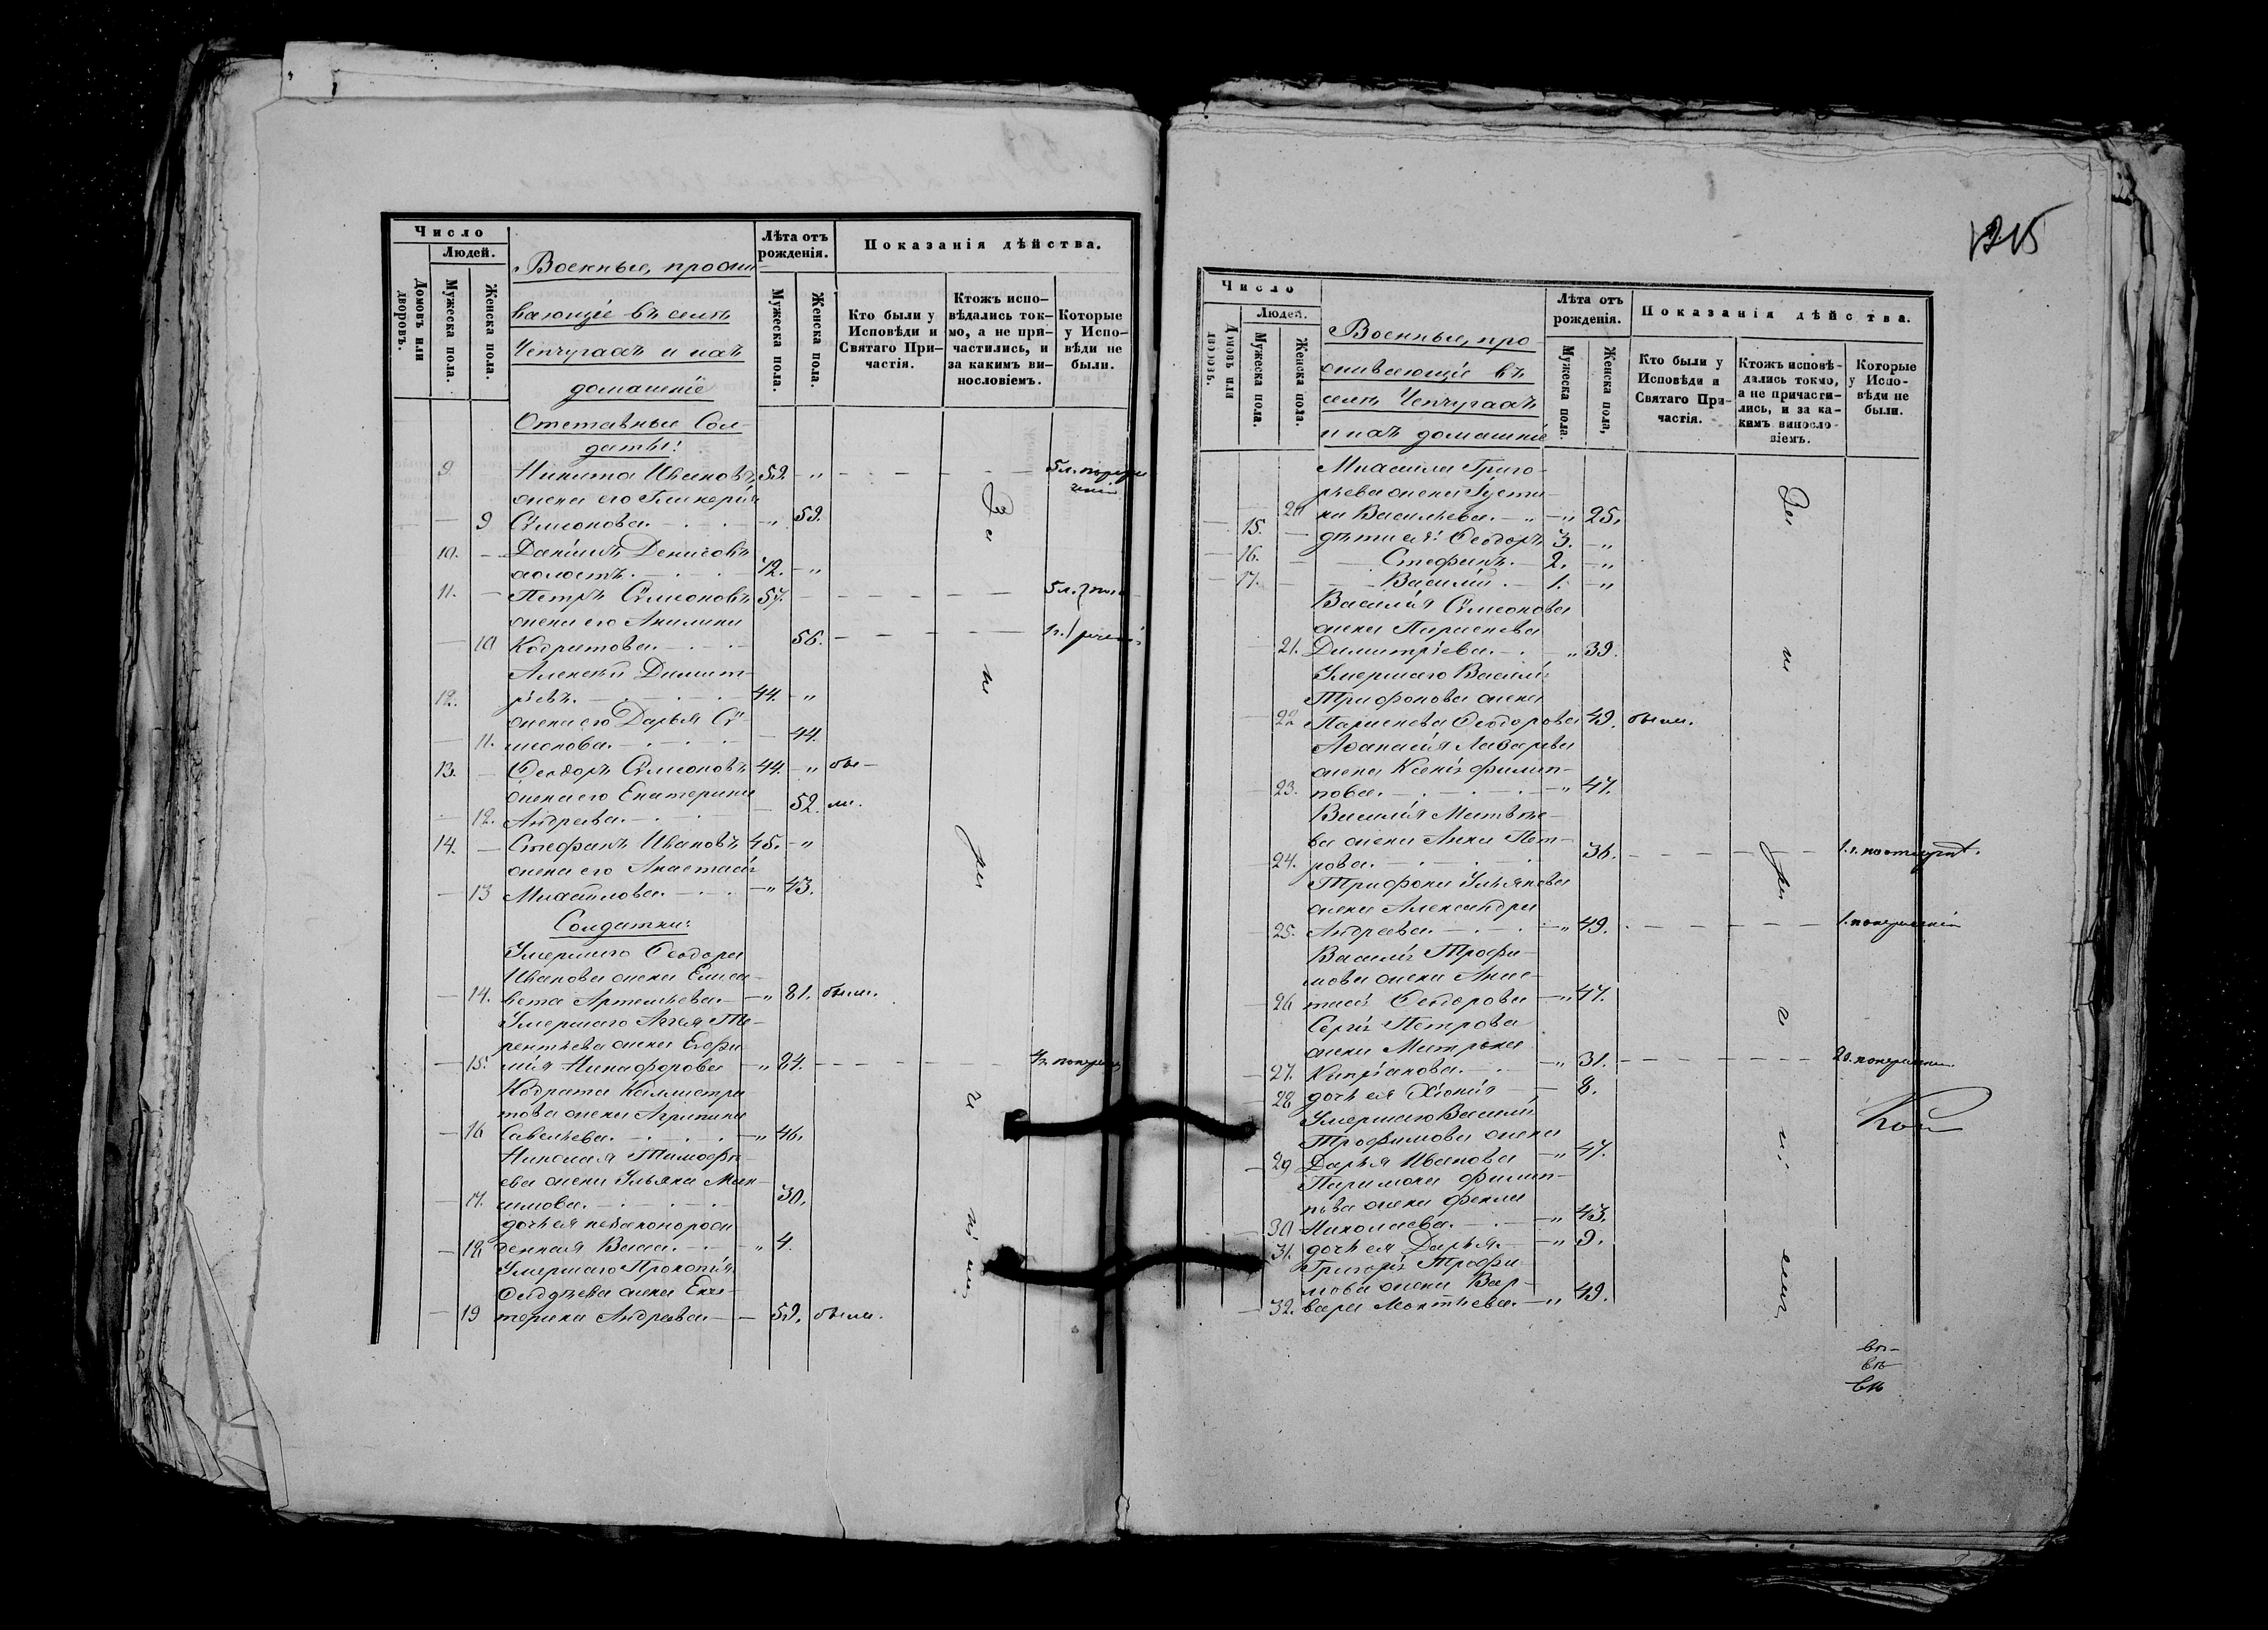 Число
Людей.
Домовъ или дворовъ.
Мужеска пола.
Женска пола.
Военные, прожи-
вающіе въ селѣ
Чепчугахъ и ихъ
домашніе
Лѣта отъ рожденія.
Мужеска пола.
Женска пола.
Показанія дѣйства.
Кто были у Исповѣди и Святаго Причастія.
Ктожъ исповѣдались токмо, а не причастились, и за какимъ винословіемъ.
Которые у Исповѣди не были.
Отставные Сол-
даты:
9 Никита Ивановъ 59. „
жена его Гликерія
9 Симеонова. „ 59.
10. Даніилъ Денисовъ
холостъ. 72. „
11. Петръ Симеоновъ 57.
жена его Акилина
10 Кодратова. 56.
Алексѣй Димит-
12. ріевъ. 44. „
жена его Дарья Си-
11. меонова. 44.
13. Ѳеодоръ Симеоновъ 44. „ бы-
жена его Екатерина
12. Андреева. 52. ли.
14. Стефанъ Ивановъ 45. „
жена его Анастасія
13 Михайлова. „ 43.
Солдатки:
Умершаго Ѳеодора
Иванова жена Елиса-
14. вета Артемьева „ 81. были.
Умершаго Те-
рентьева жена Евфи-
15. мія Никифорова „ 84.
Кодрата Каллистра-
това жена Агрипина
16 Савельева. „ 46.
Николая Тимофѣ-
ева жена Ульяна Мак-
17. симова. 30.
дочь ея незаконорож-
18 денная Васса. „ 4.
Умершаго Прокопія
жена Ека-
19 терина Андреева 59. были.
1215
Число
Людей.
Домовъ или дворовъ.
Мужеска пола.
Женска пола.
Военные, про
живающіе въ
селѣ Чепчугахъ
и ихъ домашніе
Лѣта отъ рожденія.
Мужеска пола.
Женска пола,
Показанія дѣйства.
Кто были у Исповѣди и Святаго Причастія.
Ктожъ исповѣдались токмо, а не причастились, и за какимъ винословіемъ.
Которые у Исповѣди не были.
Михаила Григо-
рьева жена Густи-
20 на Васильева. „ 25.
15. дѣти ея: Ѳеодоръ 3. „
16. Стефанъ. 2. „
17. Василій. 1. „
Василія Симеонова
жена Параскева
21. Димитріева. „ 39.
Умершаго Василія
Трифонова жена
22 Параскева Ѳеодорова 49. были.
Аѳанасія Лазарева
жена Ксенія Филип-
23. пова. „ 47.
Василія Матвѣе-
ва жена Анна Пет-
24. рова. 36.
Трифона Ульянова
жена Александра
25. Андреева. „ 49.
Василія Трофи-
мова жена Анас-
26 тасія Ѳеодорова „ 47.
Сергія Петрова
жена Матрона
27. Кипріанова. „ 31.
28 дочь ея Хіонія 8.
Умершаго Василія
Трофимова жена
29 Дарья Иванова „ 47.
Парамона Филип-
пова жена Фекла
30 Николаева. „ 43.
31. дочь ея Дарья. „ 9.
Григорія Трофи-
мова жена Вар-
32. вара „ 49.